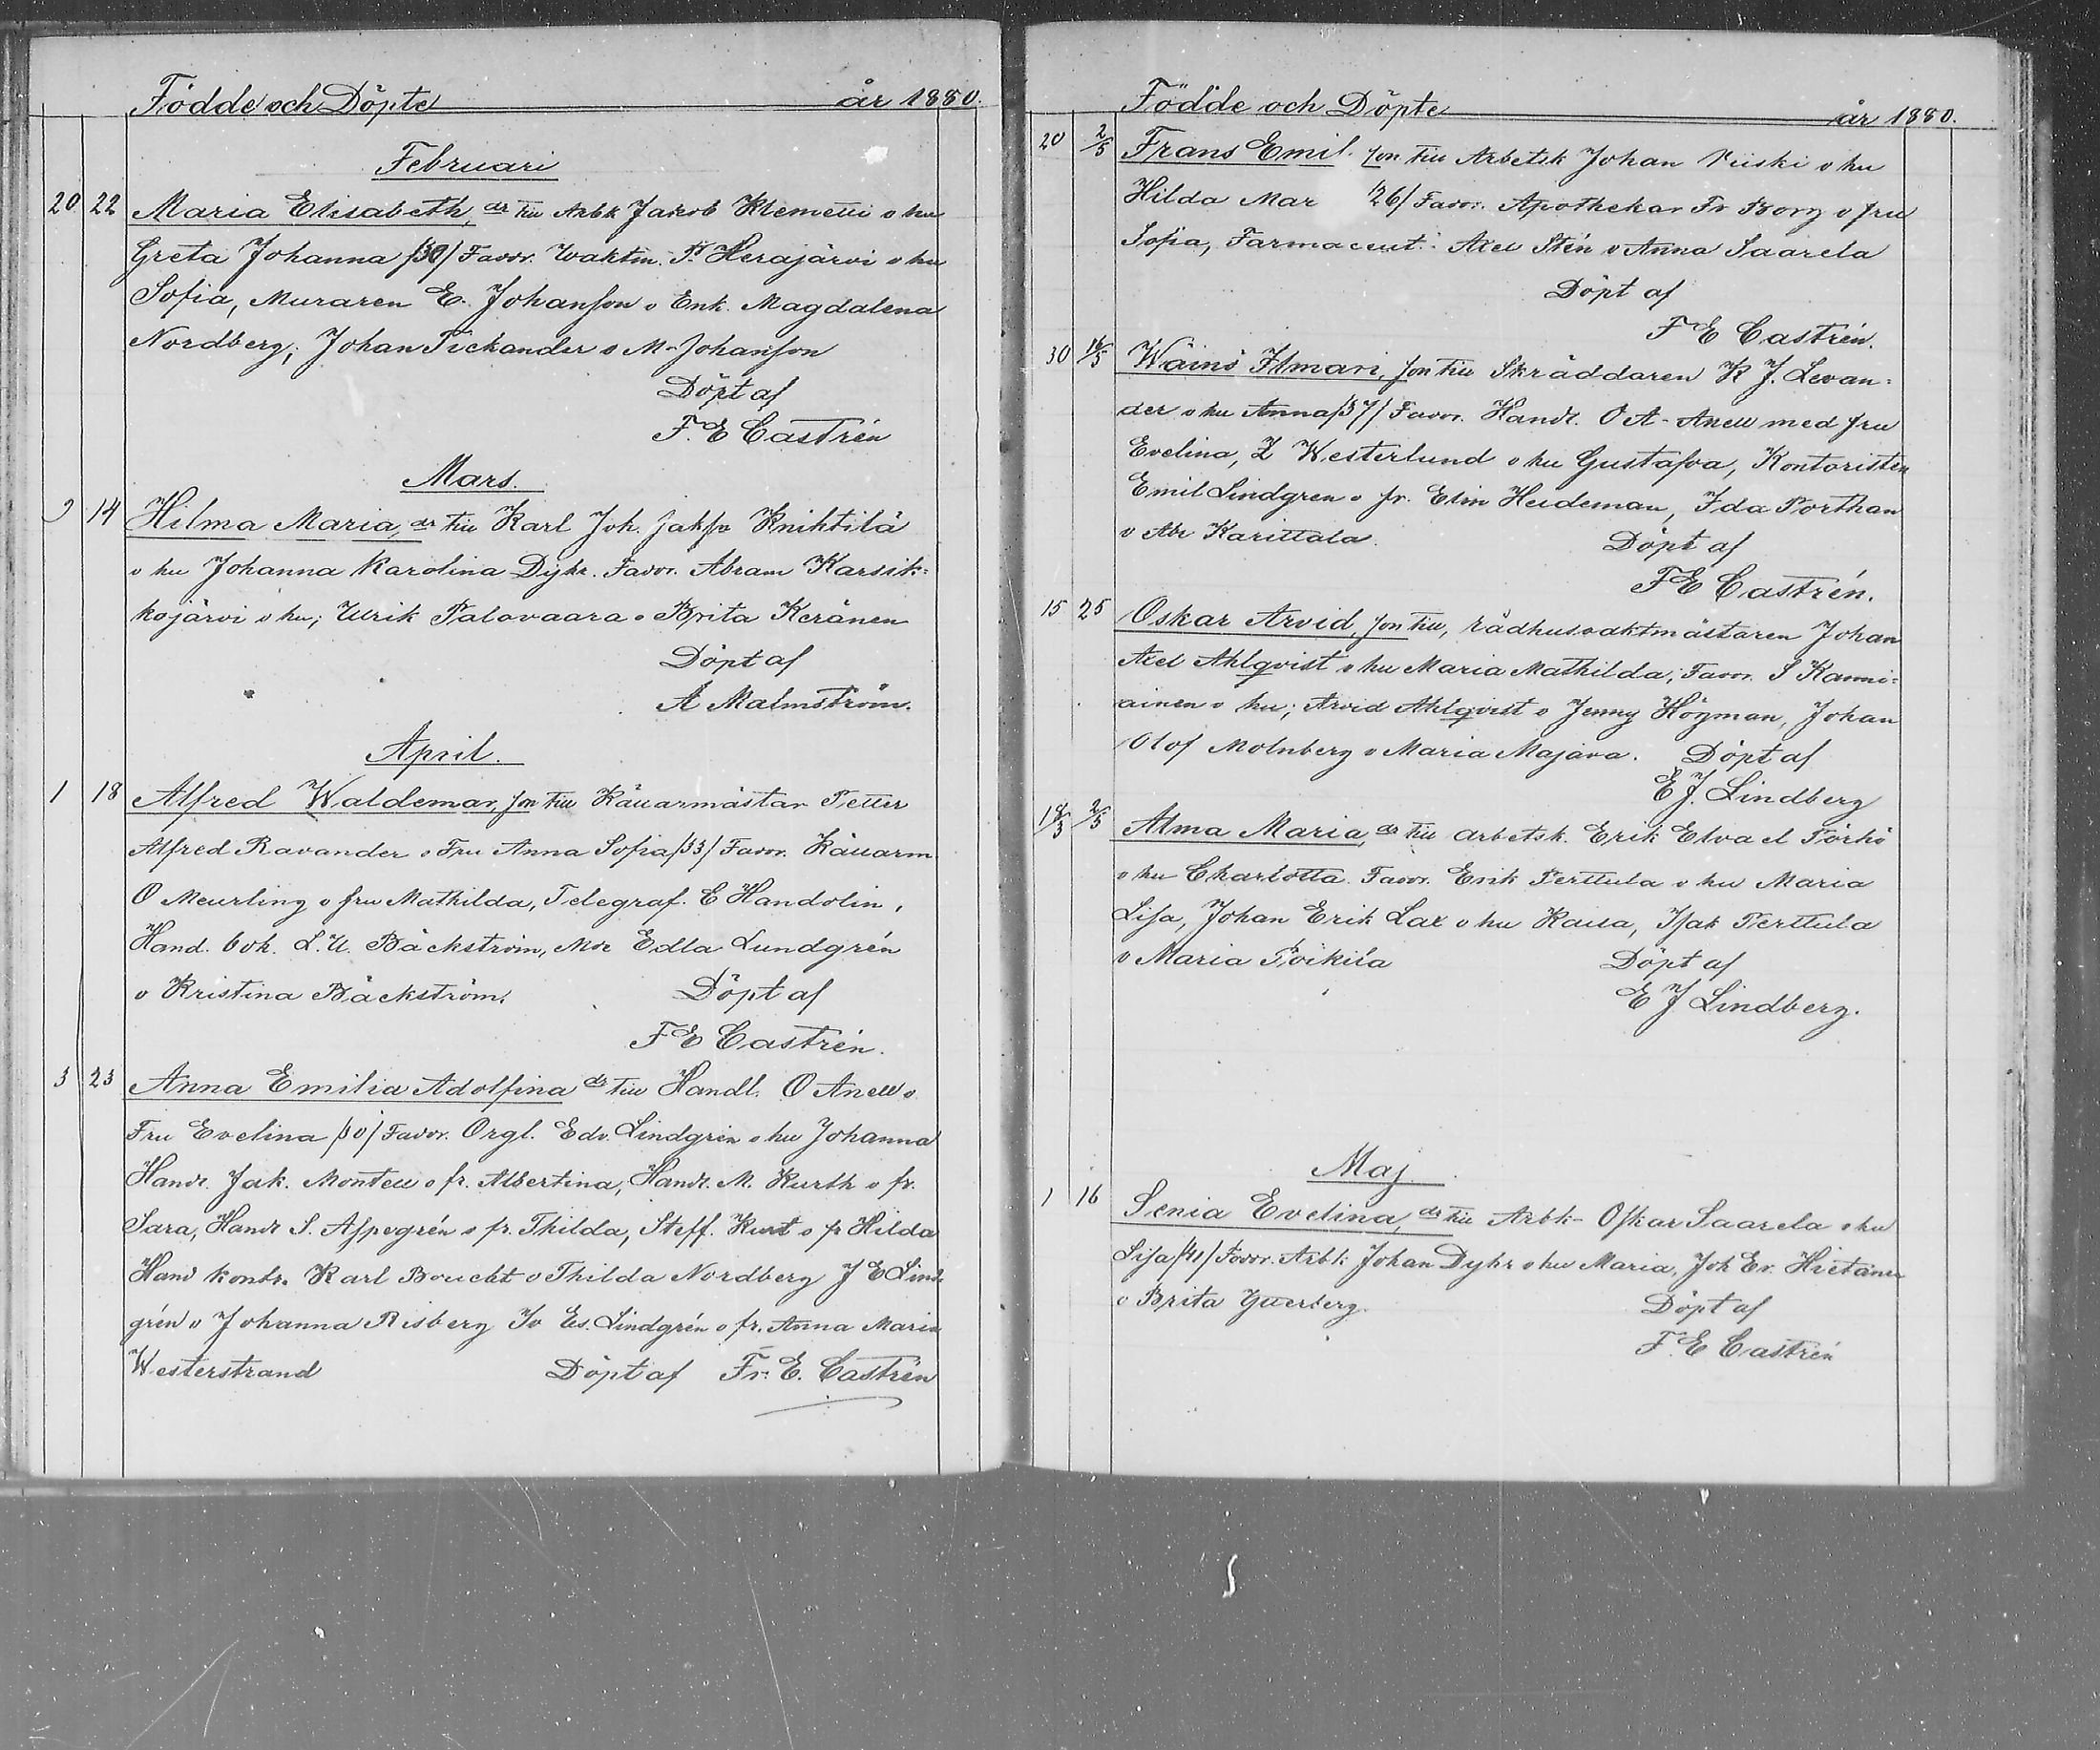 Födde och Döpte år 1880.
Februari
20 22 Maria Elisabeth, dr till Arbk Jakob Klemetti o hu
Greta Johanna /30/ Fadr. Waktm. P. Herajärvi o hu
Sofia, Muraren E. Johansson o Enk. Magdalena
Nordberg; Johan Tickander o M. Johansson
Döpt af
F. E Castrén
Mars.
9 14 Hilma Maria, dr till Karl Joh. Knihtilä
o hu Johanna Karolina Dyhr. Fadr. Abram Karsik-
kojärvi o hu; Ulrik Palovaara o Brita Keränen
Döpt af
A Malmström.
April.
1 18 Alfred Waldemar, son till Källarmästar Petter
Alfred Ravander o Fru Anna Sofia /33/ Fadr. Källarm.
O Meurling o fru Mathilda, Telegraf. E Handolin,
Hand. bok. L. U. Bäckström, Mlle Edla Lundgrén
o Kristina Bäckström.
Döpt af
F E Castrén.
3 23 Anna Emilia Adolfina dr till Handl. O Anell o
Fru Evelina /30/ Fadr. Orgl. Edv. Lindgrén o hu Johanna
Handl. Jak. Montell o fr. Albertina, Handl. M. Kurth o fr.
Sara, Handl S. Aspegrén o fr. Thilda, Steff. Kurt o fr Hilda
Hand kontr. Karl Boucht o Thilda Nordberg J E Lind-
grén o Johanna Risberg Lindgrén o fr. Anna Maria
Westerstrand Döpt af Fr. E. Castrén
Födde och Döpte år 1880.
20 2/5 Frans Emil. son till Arbetsk Johan Niiski o hu
Hilda Mar /26/ Fadr. Apothekar Fr Borg o fru
Sofia, Farmaceut. Axel Stén o Anna Saarela
Döpt af
F E Castrén.
30 16/5 Wäinö Ilmari, son till Skräddaren K J. Levan-
der o hu Anna /37/ Fadr. Handl. O A. Anell med fru
Evelina, Z Westerlund o hu Gustafva, Kontoristen
Emil Lindgren o fr. Elin Heideman, Ida Porthan
o Abr Karittala.
Döpt af
F E Castrén.
15 25 Oskar Arvid, son till, rådhusvaktmästaren Johan
Axel Ahlqvist o hu Maria Mathilda; Fadr. S Kanni-
ainen o hu; Arvid Ahlqvist o Jenny Högman, Johan
Olof Molnberg o Maria Majava. Döpt af
E J. Lindberg
14/3 2/5 Alma Maria, dr till arbetsk. Erik Elva el Törhö
o hu Charlotta. Fadr. Erik Perttula o hu Maria
Lisa, Johan Erik Lax o hu Kaisa, Isak Perttula
o Maria Poikila Döpt af
E J Lindberg.
Maj.
1 16 Senia Evelina, dr till Arbk- Oskar Saarela o hu
Lisa /41/ Fadr. Arbk Johan Dyhr o hu Maria, Joh Er. Hietanen
o Brita Ytterberg.
Döpt af
F. E Castrén